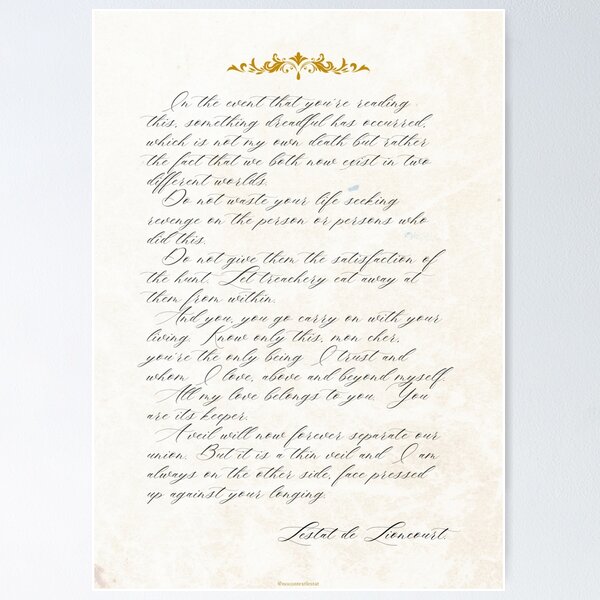 In the event that you're reading
this, something dreadful has occurred,
which is not my own death but rather
the fact that we both now exist in two
different worlds.
Do not waste your life seeking
revenge on the person or persons who
did this.
Do not give them the satisfaction of
the hunt. Let treachery eat away at
them from within.
And you, you go carry on with your
living. Know only this, mon cher,
you're the only being I trust and
whom I love, above and beyond myself.
All my love belongs to you. You
are its keeper.
A veil will now forever separate our
union. But it is a thin veil and I am
always on the other side, face pressed
up against your longing.
Lestat de Lioncourt.